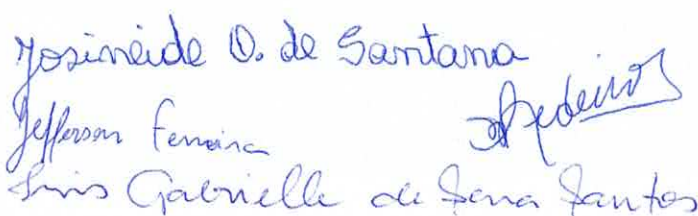 Josineide O. de Santana
Jefferson Ferreira
Medeiros
Luis Gabrielle de Sena Santos